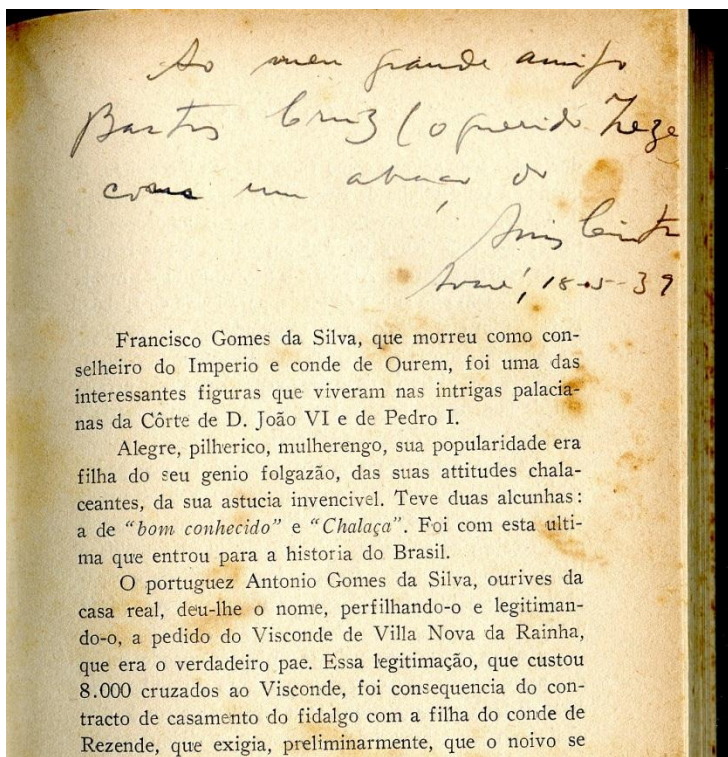 Ao meu grande amigo
Bastos Cruz (o querido Zeze
com um abraço do
Assis Cintra
Avaré, 18-5-39
Francisco Gomes da Silva, que morreu como con-
selheiro do Imperio e conde de Ourem, foi uma das
interessantes figuras que viveram nas intrigas palacia-
nas da Côrte de D. João VI e de Pedro I.
Alegre, pilherico, mulherengo, sua popularidade era
filha do seu genio folgazão, das suas attitudes chala-
ceantes, da sua astucia invencivel. Teve duas alcunhas:
a de “bom conhecido” e “Chalaça”. Foi com esta ulti-
ma que entrou para a historia do Brasil.
O portuguez Antonio Gomes da Silva, ourives da
casa real, deu-lhe o nome, perfilhando-o e legitiman-
do-o, a pedido do Visconde de Villa Nova da Rainha,
que era o verdadeiro pae. Essa legitimação, que custou
8.000 cruzados ao Visconde, foi consequencia do con-
tracto de casamento do fidalgo com a filha do conde de
Rezende, que exigia, preliminarmente, que o noivo se